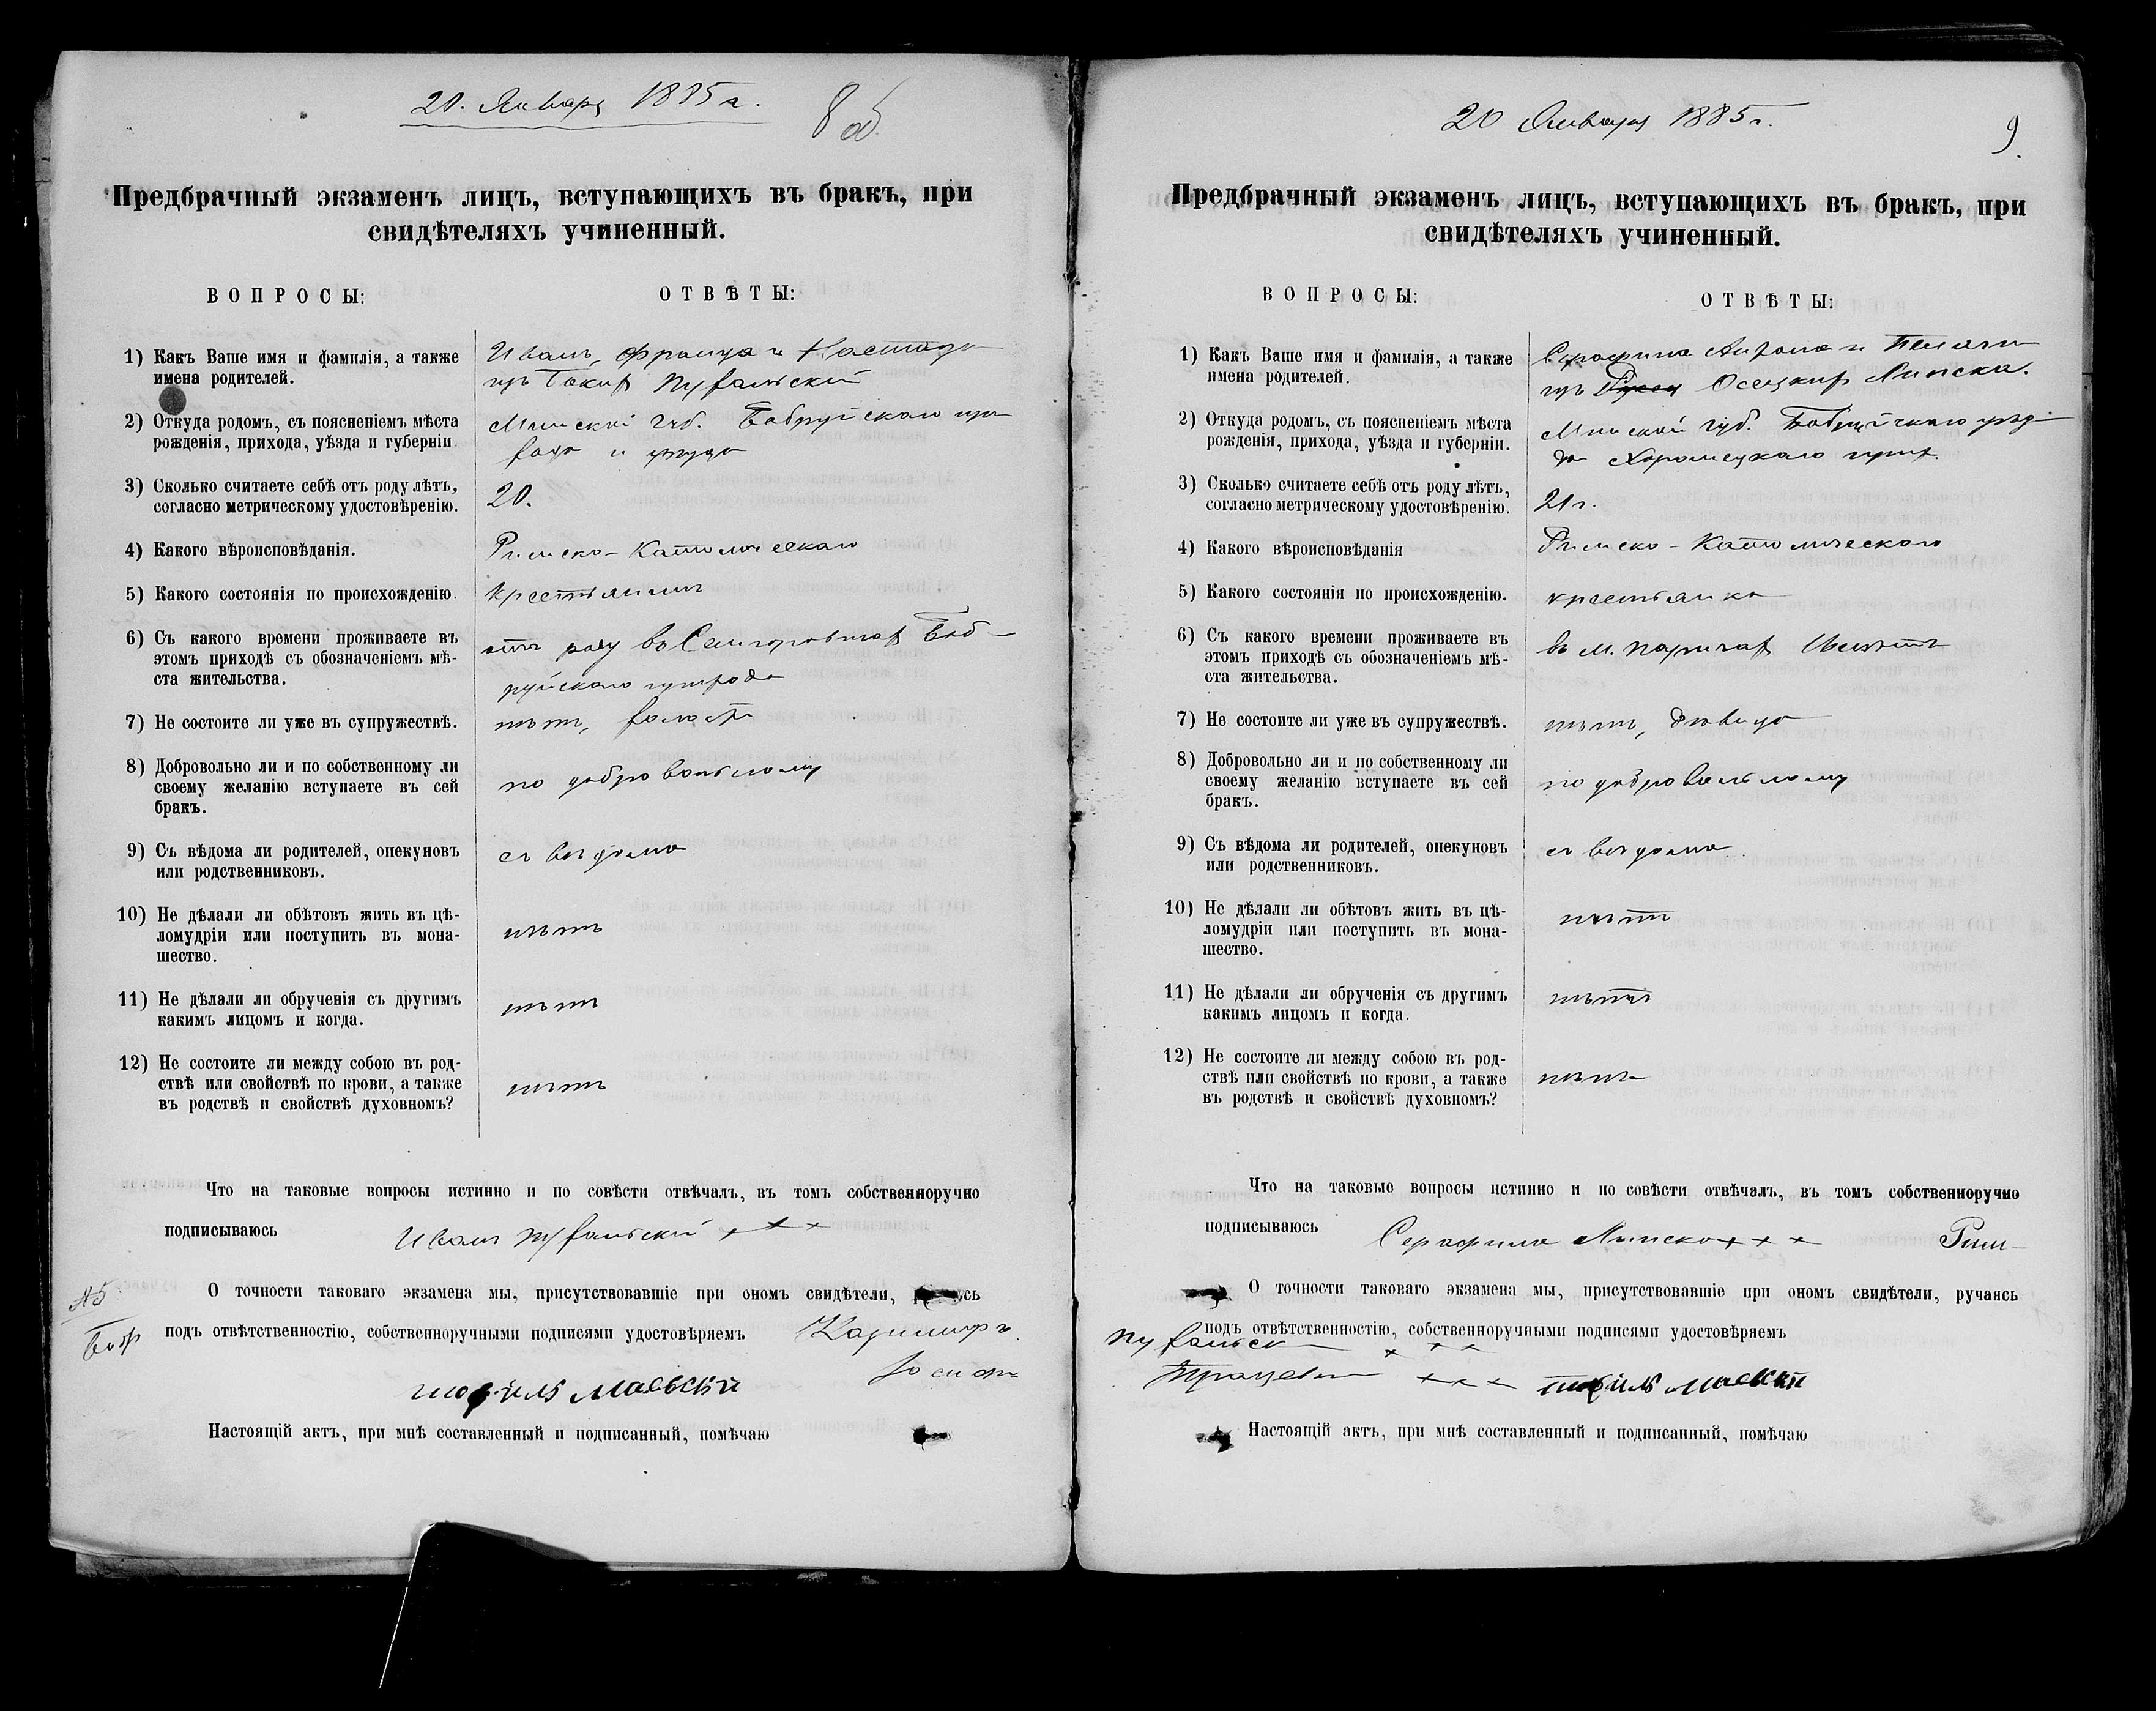 20. Января 1885 г.
8 об.
Предбрачный экзаменъ лицъ, вступающихъ въ бракъ, при
свидѣтеляхъ учиненный.
ВОПРОСЫ:
ОТВѢТЫ:
1) Какъ Ваше имя и фамилія, а также
имена родителей.
Иванъ, Франца и
изъ
2) Откуда родомъ, съ поясненіемъ мѣста
рожденія, прихода, уѣзда и губерніи
Минской губ. Бобруйскаго при
хода и уѣзда
3) Сколько считаете себѣ отъ роду лѣтъ,
согласно метрическому удостовѣренію.
20.
4) Какого вѣроисповѣданія.
Римско-Католическаго
5) Какого состоянія по происхожденію.
крестьянинъ
6) Съ какого времени проживаете въ
этомъ приходѣ съ обозначеніемъ мѣ-
ста жительства.
отъ роду въ Боб-
руйскаго прихода
7) Не состоите ли уже въ супружествѣ.
нѣтъ, холостъ
8) Добровольно ли и по собственному ли
своему желанію вступаете въ сей
бракъ.
по добровольному
9) Съ вѣдома ли родителей, опекуновъ
или родственниковъ.
съ вѣдома
10) Не дѣлали ли обѣтовъ жить въ цѣ-
ломудріи или поступить въ мона-
шество.
нѣтъ
11) Не дѣлали ли обрученія съ другимъ
какимъ лицомъ и когда.
нѣтъ
12) Не состоите ли между собою въ род-
ствѣ или свойствѣ по крови, а также
въ родствѣ и свойствѣ духовномъ?
нѣтъ
Что на таковые вопросы истинно и по совѣсти отвѣчалъ, въ томъ собственноручно
подписываюсь Иванъ + + +
О точности таковаго экзамена мы, присутствовавшіе при ономъ свидѣтели,
№5
подъ отвѣтственностію, собственноручными подписями удостовѣряемъ Казимиръ
Іосифъ
Настоящій актъ, при мнѣ составленный и подписанный, помѣчаю
20 Января 1885 г.
9.
Предбрачный экзаменъ лицъ, вступающихъ въ бракъ, при
свидѣтеляхъ учиненный.
ВОПРОСЫ:
ОТВѢТЫ:
1) Какъ Ваше имя и фамилія, а также
имена родителей.
Серафина Антона и
изъ Осецкихъ Липска.
2) Откуда родомъ, съ поясненіемъ мѣста
рожденія, прихода, уѣзда и губерніи.
Минской губ. Бобруйскаго уѣз-
да прих.
3) Сколько считаете себѣ отъ роду лѣтъ,
согласно метрическому удостовѣренію.
21 г.
4) Какого вѣроисповѣданія
Римско-Католическаго
5) Какого состоянія по происхожденію.
крестьянка
6) Съ какого времени проживаете въ
этомъ приходѣ съ обозначеніемъ мѣ-
ста жительства.
въ м. Паричахъ
7) Не состоите ли уже въ супружествѣ.
нѣтъ, дѣвица
8) Добровольно ли и по собственному ли
своему желанію вступаете въ сей
бракъ.
по добровольному
9) Съ вѣдома ли родителей, опекуновъ
или родственниковъ.
съ вѣдома.
10) Не дѣлали ли обѣтовъ жить въ цѣ-
ломудріи или поступить въ мона-
шество.
нѣтъ
11) Не дѣлали ли обрученія съ другимъ
какимъ лицомъ и когда.
нѣтъ
12) Не состоите ли между собою въ род-
ствѣ или свойствѣ по крови, а также
въ родствѣ и свойствѣ духовномъ?
нѣтъ
Что на таковые вопросы истинно и по совѣсти отвѣчалъ, въ томъ собственноручно
подписываюсь Серафина Липска + + +
О точности таковаго экзамена мы, присутствовавшіе при ономъ свидѣтели, ручаясь
подъ отвѣтственностію, собственноручными подписями удостовѣряемъ
+ + +
+ + +
Настоящій актъ, при мнѣ составленный и подписанный, помѣчаю